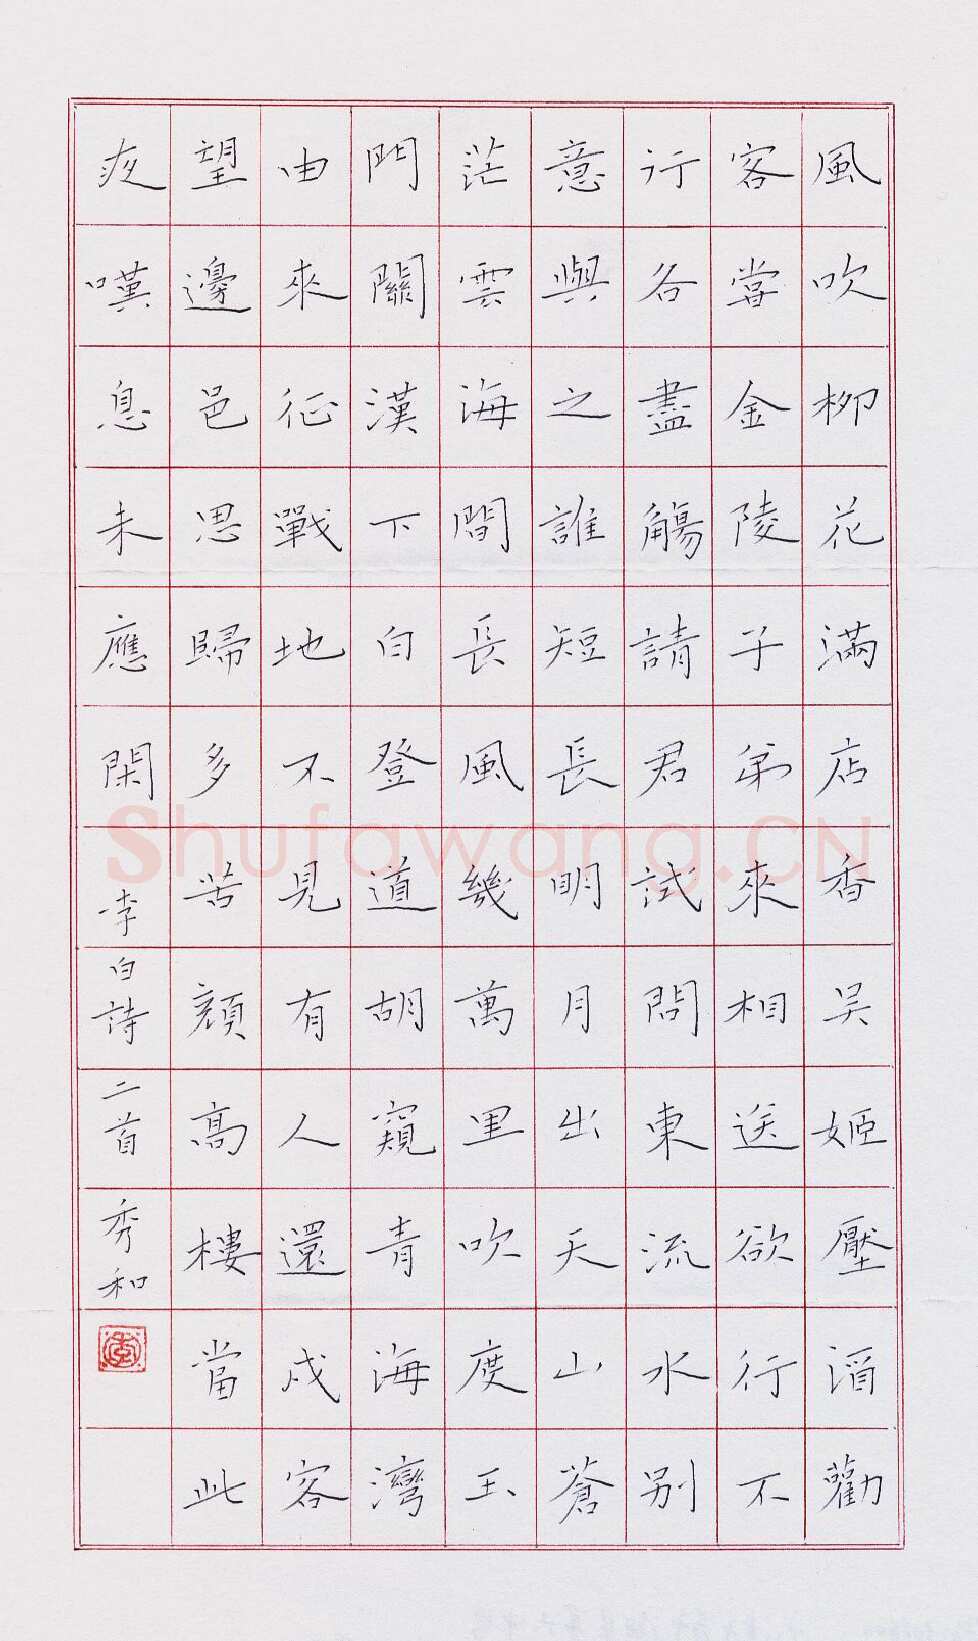 風吹柳花滿店香吳姬壓酒勸
客嘗金陵子弟來相送欲行不
行各盡觴請君試問東流水別
意與之誰短長明月出天山蒼
茫雲海間長風幾萬里吹度玉
門關漢下白登道胡窺青海灣
由來征戰地不見有人還戍客
望邊邑思歸多苦顏高樓當此
夜嘆息未應閑
李白詩二首秀和
Shufawang.CN